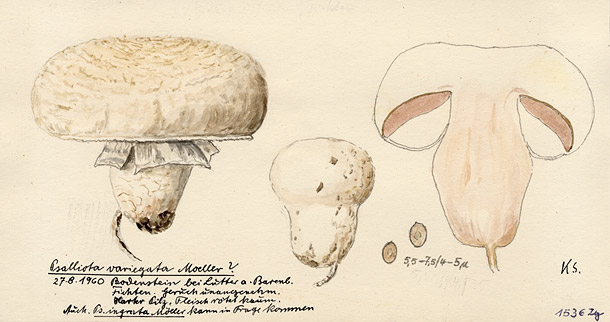 Psalliota variegata Moeller ?
27·8·1960 Bodenstein bei Lutter a. Barenb.
Fichten. Geruch unangenehm.
Starker Pilz, Fleisch rötet kaum.
Auch Ps. ingrata Möller kann in Frage kommen
5,5-7,5/4-5 µ
KS.
1536 Zg